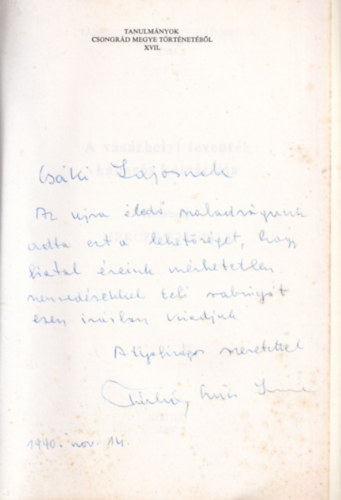 TANULMÁNYOK
CSONGRÁD MEGYE TÖRTÉNETÉBŐL
XVII.
Csáki Lajosnak
Az ujra éledő szabadságunk
adta ezt a lehetőséget, hogy
fiatal éveink mérhetetlen
szenvedésekkel teli rabságát
ezen irásban kiadjuk
szeretettel
1990. nov. 14.